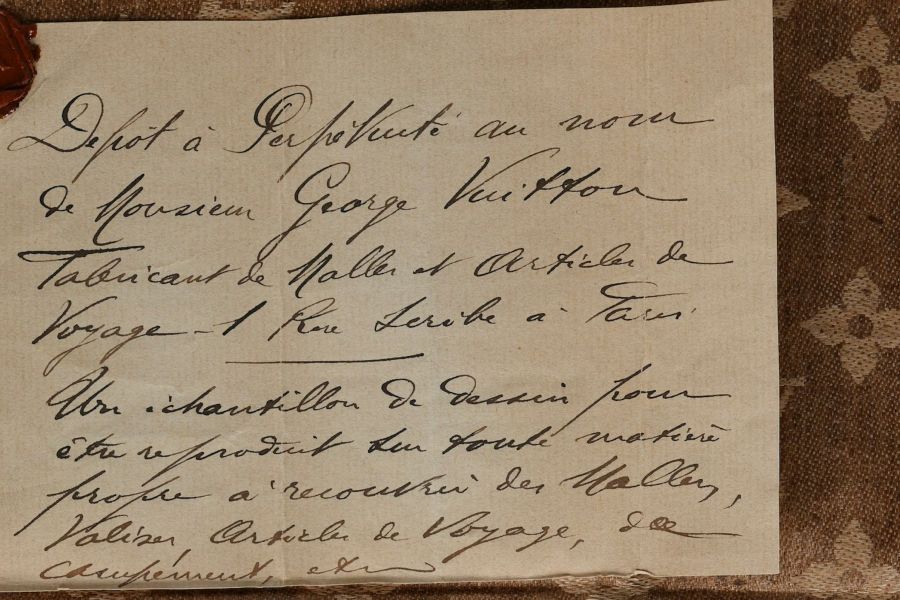 Dépôt à Perpétuité au nom
de Monsieur George Vuitton
Fabricant de Malles et Articles de
Voyage - 1 Rue Scribe à Paris
Un échantillon de dessin pour
être reproduit sur toute matière
propre à recouvrir des Malles,
Valises, Articles de Voyage, de
campement, etc